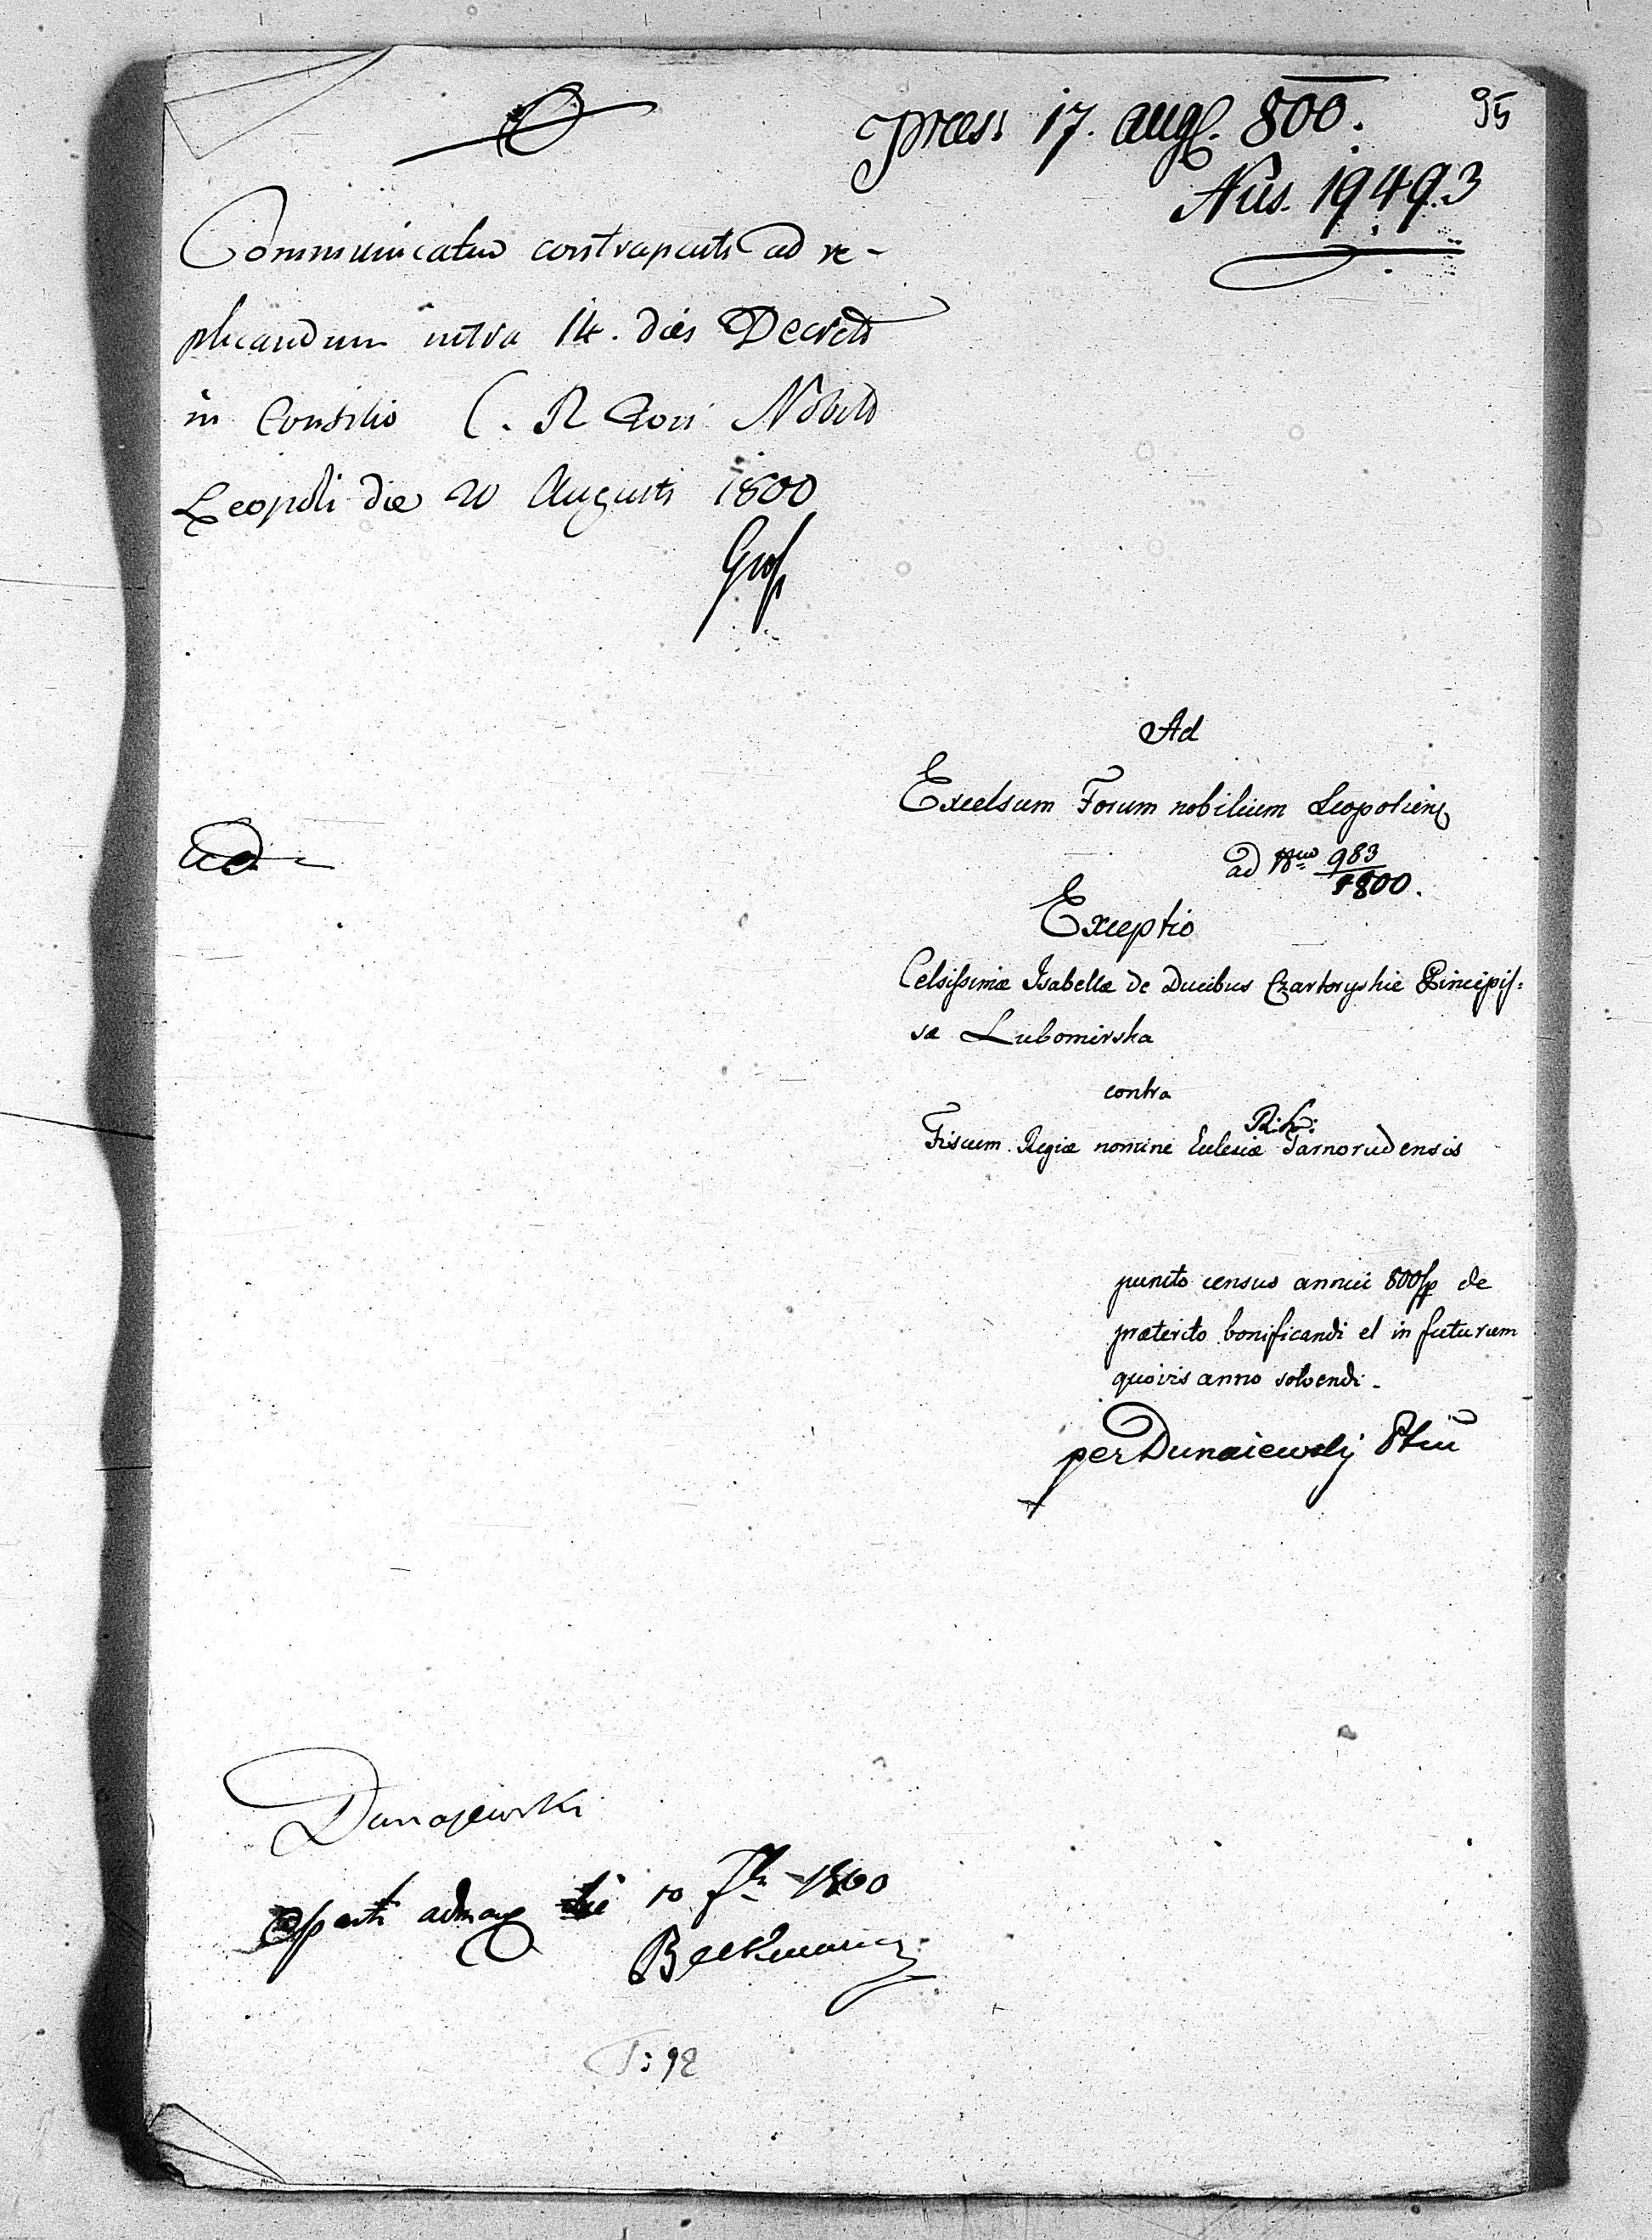 95
præss 17. augs. 800.
Nus. 19493
Communicatur contraparti ad re-
plicandum intra 14. dies Decreto
in Consilio C. R Fori Nobilis
Leopoli die 20 Augusti 1800
Ad
Excelsum Forum nobilium Leopoliens
ad Nrum 983
1800.
Exceptio
Celsissimæ Isabellæ de Ducibus Czartoryskie Principis:
sæ Lubomirska
contra
R: L:
Fiscum Regiæ nomine Eclesiæ Tarnorudensis
puncto census annui 800fp de
præterito bonificandi et in futurum
quovis anno solvendi.
per Dunaiewskj
Dunajewski
10 1800
T: 92